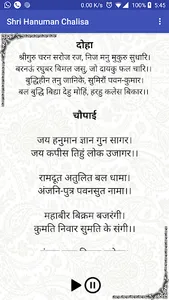 5:45
Shri Hanuman Chalisa
दोहा
श्रीगुरु चरन सरोज रज, निज मनु मुकुरु सुधारि।
बरनउँ रघुबर बिमल जसु, जो दायकु फल चारि।।
बुद्धिहीन तनु जानिके, सुमिरौं पवन-कुमार।
बल बुद्धि बिद्या देहु मोहिं, हरहु कलेस बिकार।।
चौपाई
जय हनुमान ज्ञान गुन सागर।
जय कपीस तिहुं लोक उजागर।।
रामदूत अतुलित बल धामा।
अंजनि-पुत्र पवनसुत नामा।।
महाबीर बिक्रम बजरंगी।
कुमति निवार सुमति के संगी।।